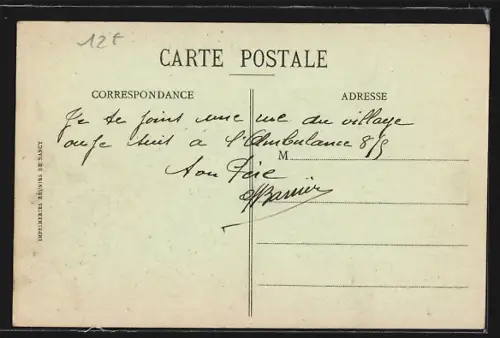 12F
CARTE POSTALE
CORRESPONDANCE
ADRESSE
Je te joins une vue du village
ou je suis à l'Ambulance 8/5
M
ton Père
IMPRIMERIES RÉUNIES DE NANCY